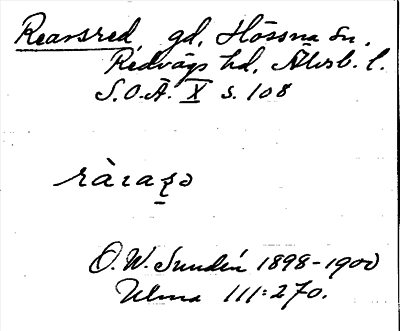 Rearsred, gd, Hössna sn.
Redvägs hd, Älvsb. l.
S.O.Ä. X s. 108
ràraꞩə
O. W. Sundén 1898-1900
Ulma 111:270.